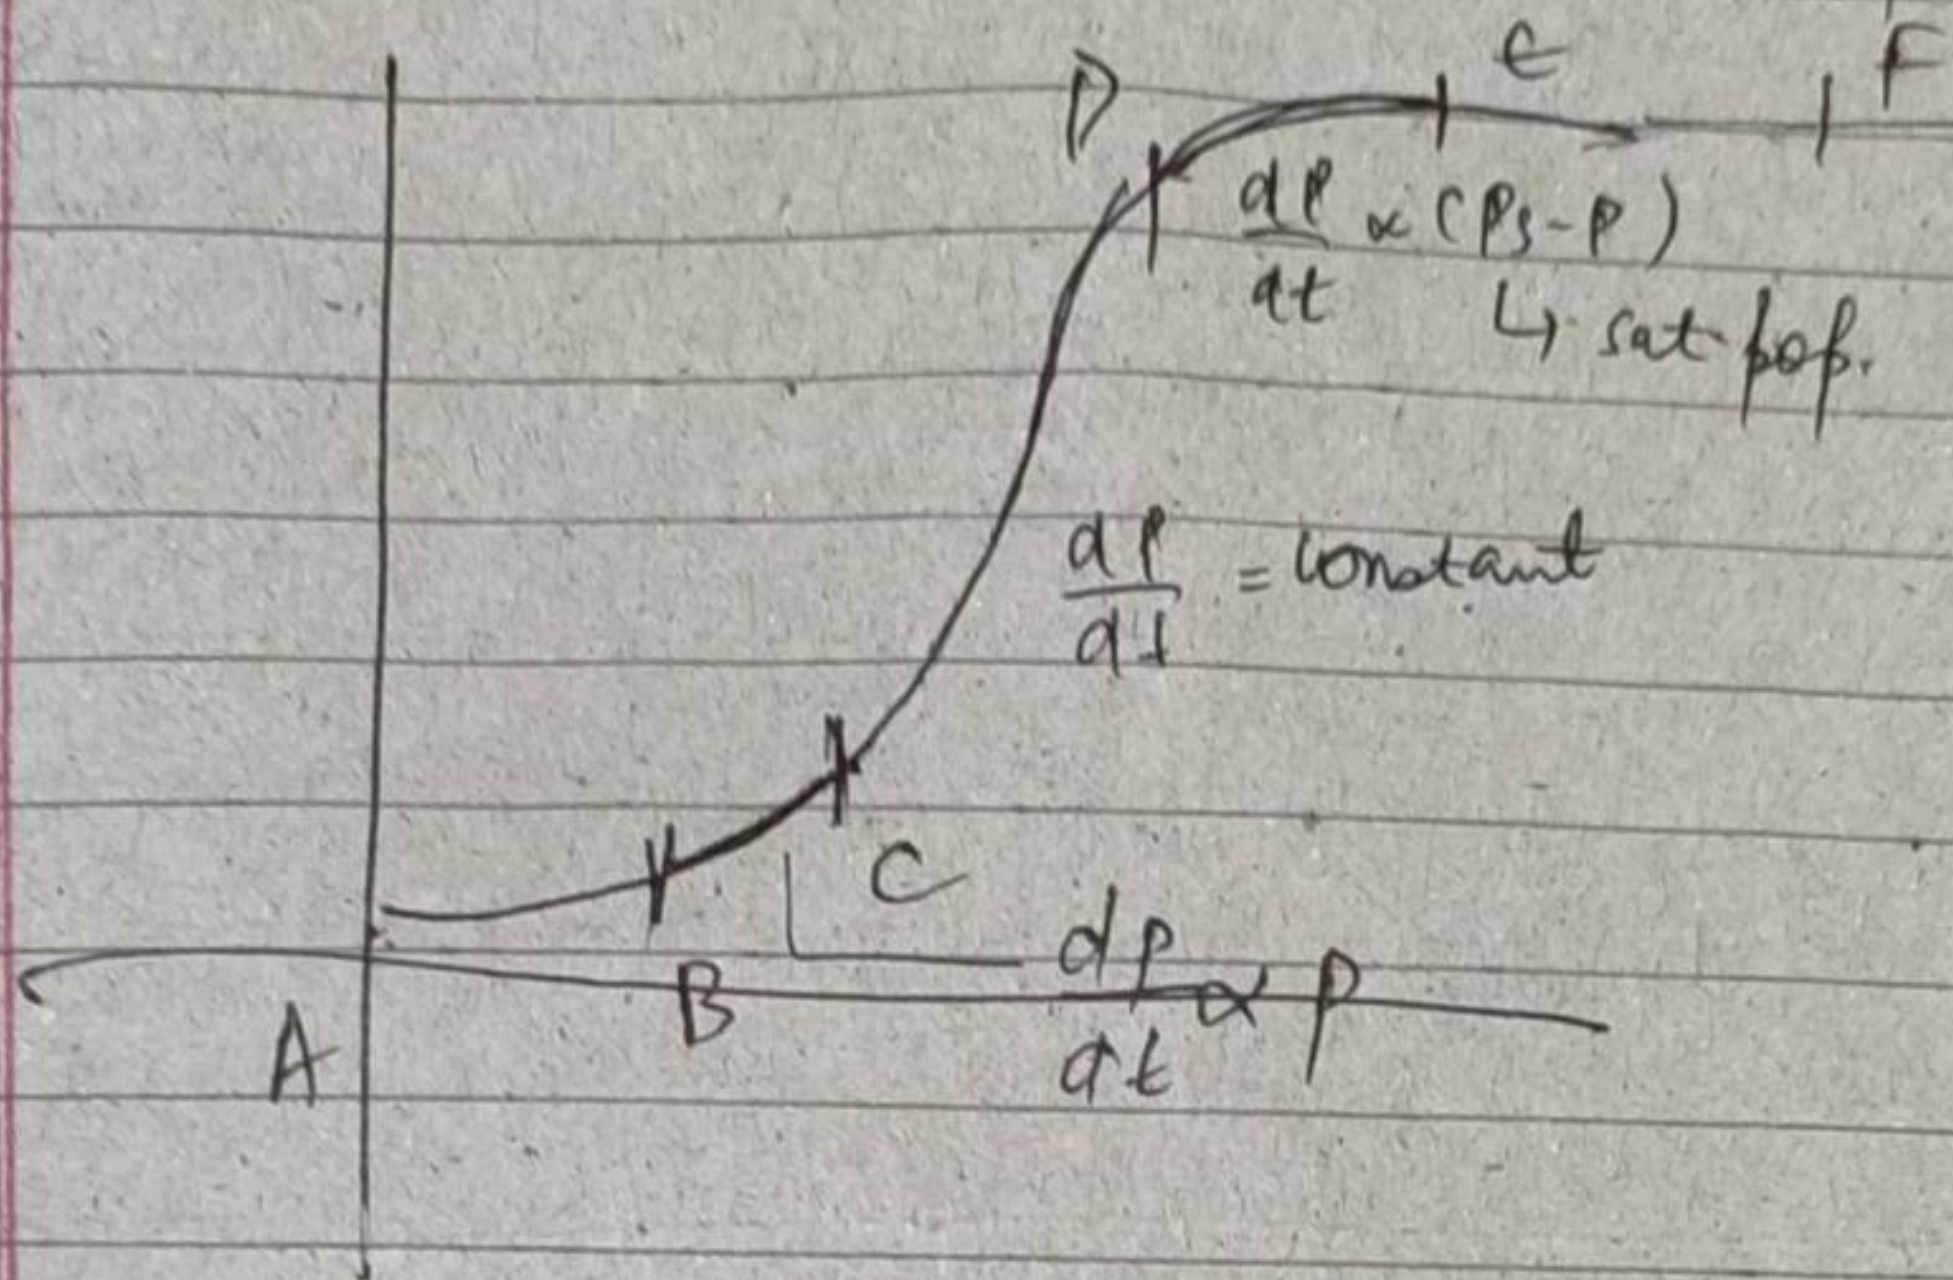 D E F
dP/dt ∝ (Ps-P)
↳ sat pop.
dP/dt = constant
C
B
dP/dt ∝ P
A